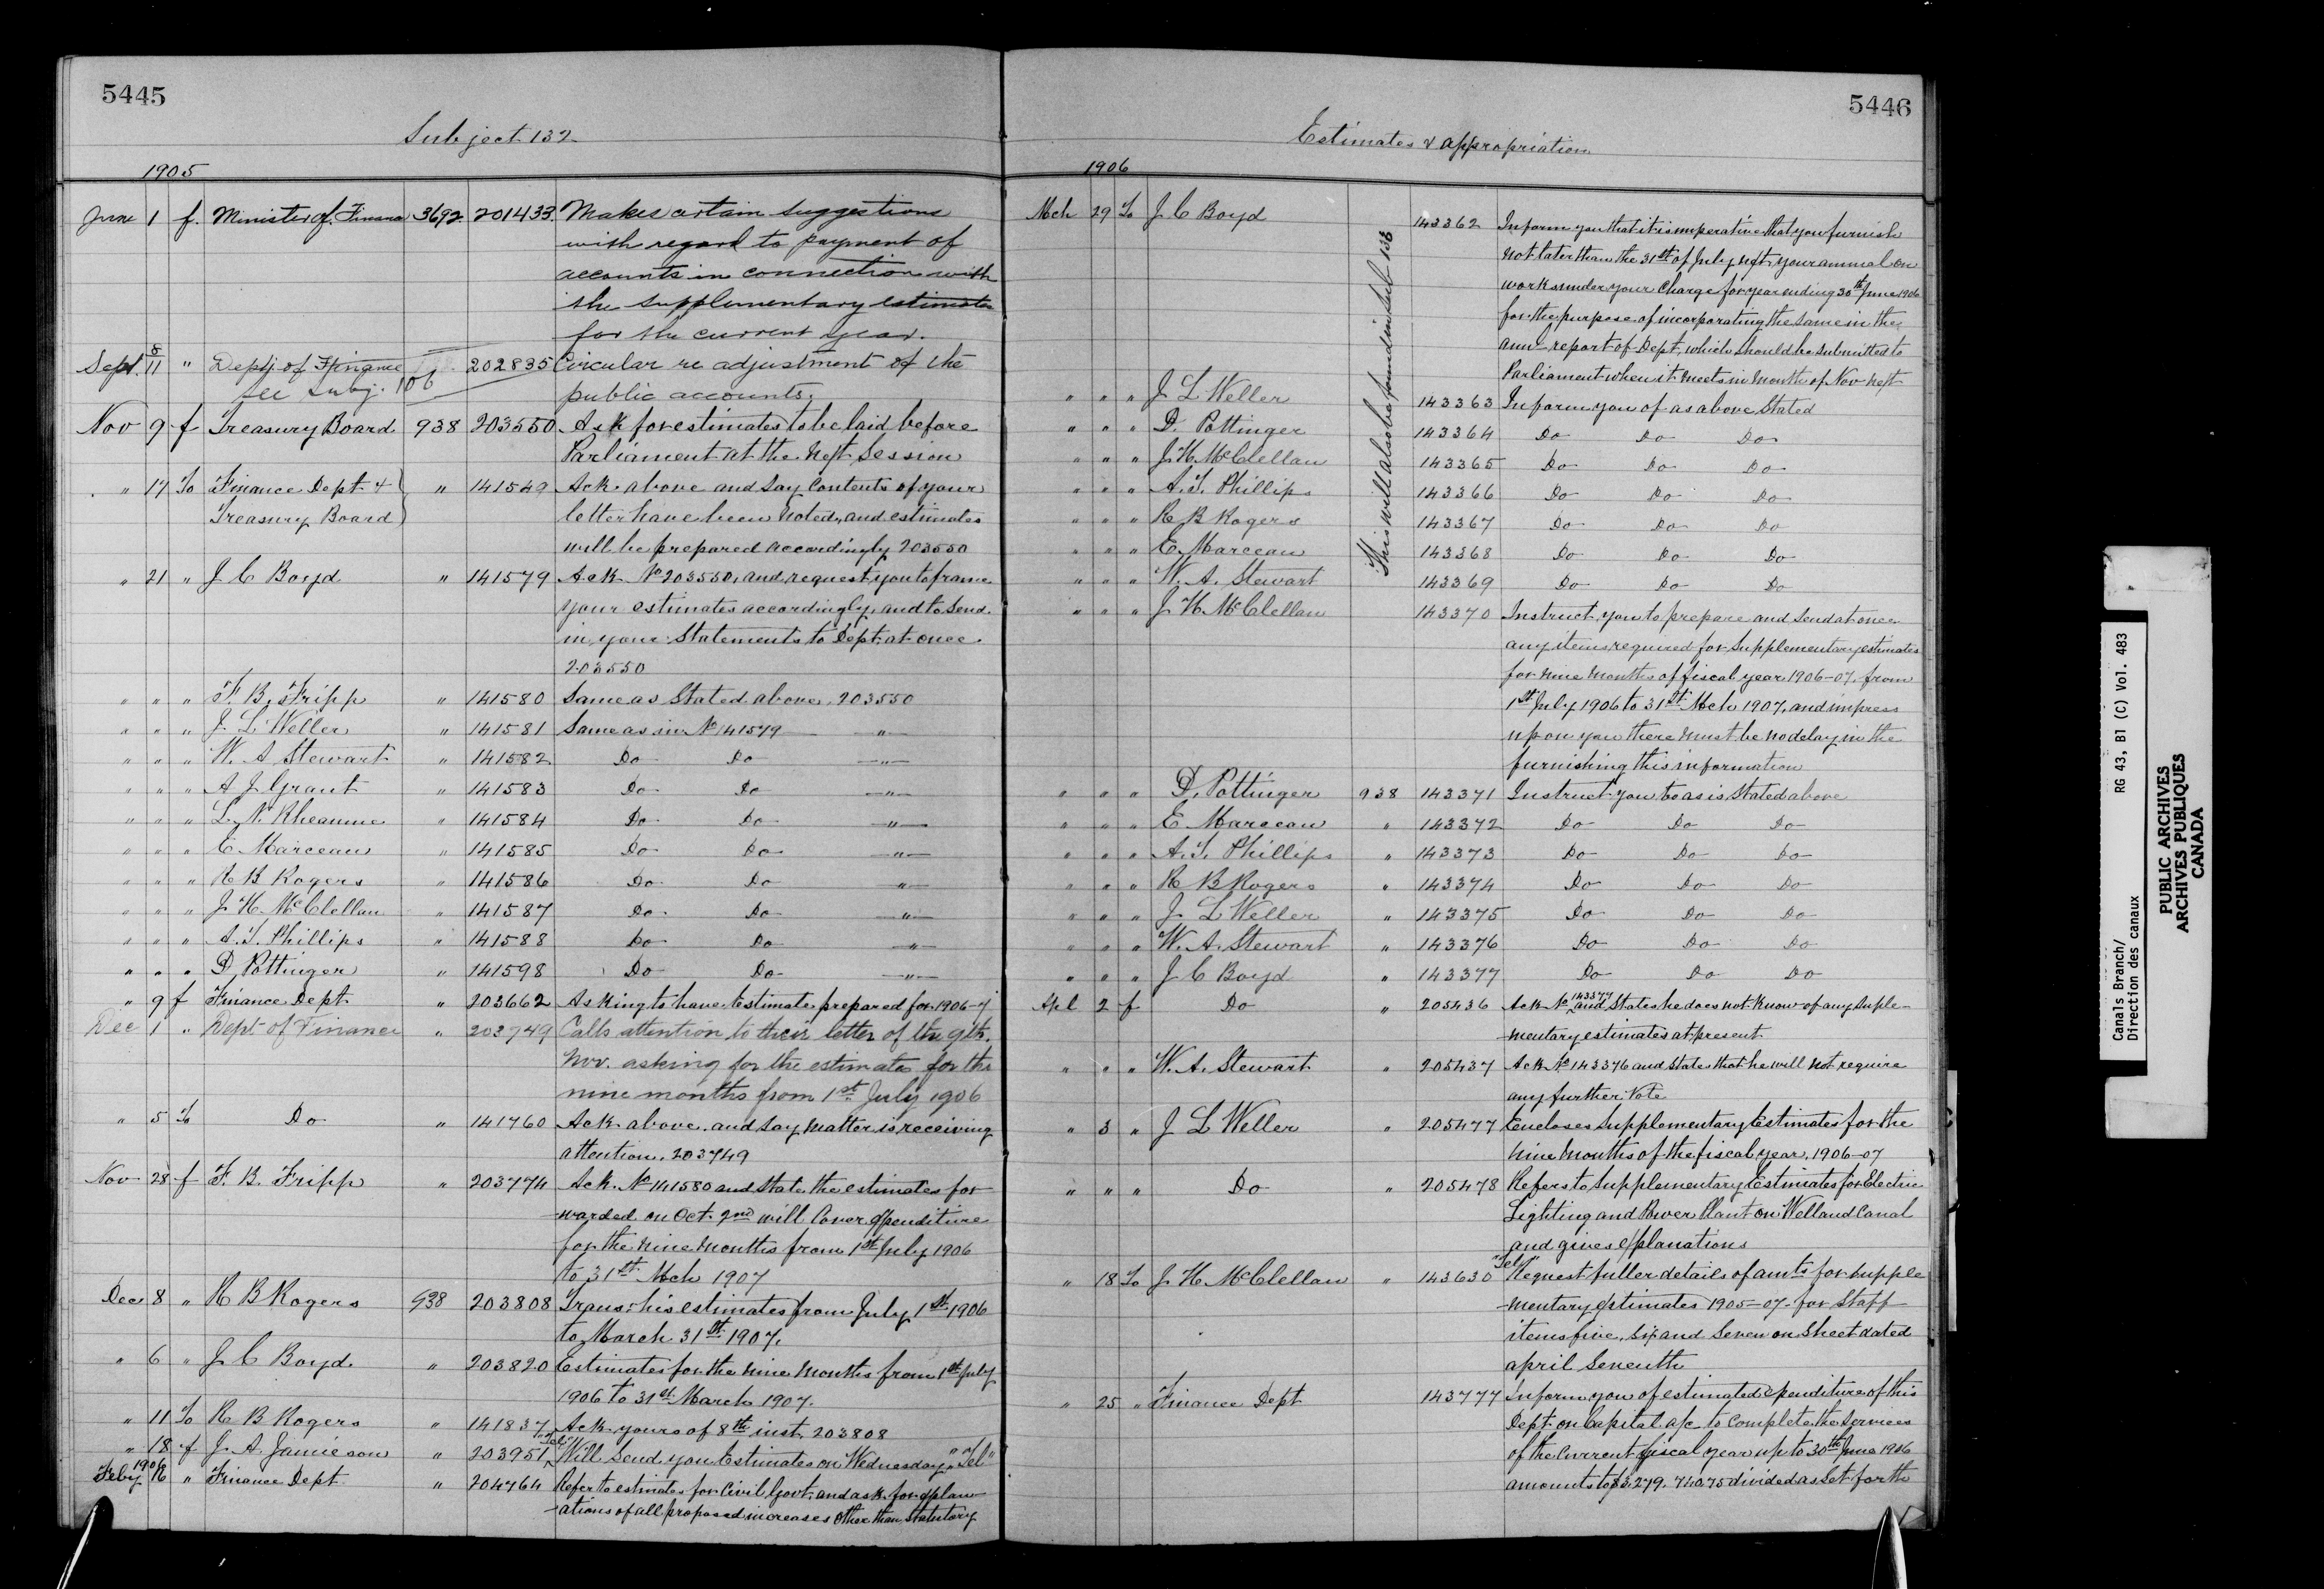 5445
Subject 132
1905
June 1 f. Minister of Finance 3692 201433. Makes certain suggestions
with regard to payment of
accounts in connection with
the supplementary estimates
for the current year.
Sept. 8/11 " Dept. of Finance 202835 Circular re adjustment of the
see subj. 106 public accounts.
Nov 9 f Treasury Board 938 203550 Ask for estimates to be laid before
Parliament at the next Session
" 17 To Finance Dept & " 141549 Ack above and say contents of your
Treasury Board letter have been noted, and estimates
will be prepared accordingly 203550
" 21 " J C Boyd " 141579 Ack No 203550, and request you to frame
your estimates accordingly, and to send
in your Statements to Dept. at once.
203550
" " " F. B. Fripp " 141580 Same as Stated above, 203550
" " " J L Weller " 141581 Same as in No 141579 "
" " " W. A Stewart " 141582 Do Do "
" " " A J Grant " 141583 Do Do "
" " " L. N. Rheaume " 141584 Do Do "
" " " E Marceau " 141585 Do Do "
" " " R B Rogers " 141586 Do Do "
" " " J H McClellan " 141587 Do Do "
" " " A. T. Phillips " 141588 Do Do "
" " " D Pottinger " 141598 Do Do "
" 9 f Finance Dept " 203662 Asking to have Estimate prepared for 1906-7
Dec 1 " Dept of Finance " 203749 Calls attention to their letter of the 9th.
Nov. asking for the estimates for the
nine months from 1st July 1906
" 5 To Do " 141760 Ack above, and say matter is receiving
attention. 203749
Nov 28 f F. B. Fripp " 203774 Ack. No 141580 and state the estimates for
warded on Oct. 2nd will cover expenditure
for the nine months from 1st July 1906
to 31st Mch 1907
Dec 8 " R B Rogers 938 203808 Trans: his estimates from July 1st 1906
to March 31st 1907.
" 6 " J C Boyd. " 203820 Estimates for the nine months from 1st July
1906 to 31st March 1907.
" 11 To R B Rogers " 141837 Ack yours of 8th inst. 203808
" 18 f J. A. Jamieson " 203951 "Tel" Will send you Estimates on Wednesday, "Tel"
1906
Feby 16 " Finance Dept " 204764 Refer to estimates for Civil Govt. and ask for explan
ations of all proposed increases other than Statutory
5446
Estimates & appropriation
1906
Mch 29 To J C Boyd 143362 Inform you that it is imperative that you furnish
not later than the 31st of July next, your annual on
works under your charge for year ending 30th June 1906
for the purpose of incorporating the same in the
ann report of Dept, which should be submitted to
Parliament when it meets in month of Nov next
This will also be found in Sub 133
" " " J L Weller 143363 Inform you of as above Stated
" " " D. Pottinger 143364 Do Do Do
" " " J H McClellan 143365 Do Do Do
" " " A. T. Phillips 143366 Do Do Do
" " " R B Rogers 143367 Do Do Do
" " " E. Marceau 143368 Do Do Do
" " " W. A. Stewart 143369 Do Do Do
" " " J H McClellan 143370 Instruct you to prepare and send at once
any items required for Supplementary estimates
for nine months of fiscal year 1906-07, from
1st July 1906 to 31st Mch 1907, and impress
upon you there must be no delay in the
furnishing this information
" " " D. Pottinger 938 143371 Instruct you to as is Stated above
" " " E Marceau " 143372 Do Do Do
" " " A. T. Phillips " 143373 Do Do Do
" " " R B Rogers " 143374 Do Do Do
" " " J L Weller " 143375 Do Do Do
" " " W. A. Stewart " 143376 Do Do Do
" " " J C Boyd " 143377 Do Do Do
Apl 2 f Do " 205436 Ack No 143377 and States he does not know of any Suple-
mentary estimates at present
" " " W. A. Stewart " 205437 Ack No 143376 and states that he will not require
any further Vote
" 3 " J L Weller " 205477 Encloses Supplementary Estimates for the
nine months of the fiscal year, 1906-07
" " " Do " 205478 Refers to Supplementary Estimates for Electric
Lighting and Power Plant on Welland Canal
and gives explanations
" 18 To J H McClellan " 143630 "Tel" Request fuller details of amts for supple
mentary estimates 1905-07 for Staff
items five, six and Seven on Sheet dated
april Seventh
" 25 " Finance Dept 143777 Inform you of estimated expenditure of this
Dept on Capital a/c to complete the services
of the current fiscal year up to 30th June 1906
amounts to $3,279,740.75 divided as set forth
Canals Branch/ RG 43, B1 (C) Vol. 483
Direction des canaux
PUBLIC ARCHIVES
ARCHIVES PUBLIQUES
CANADA